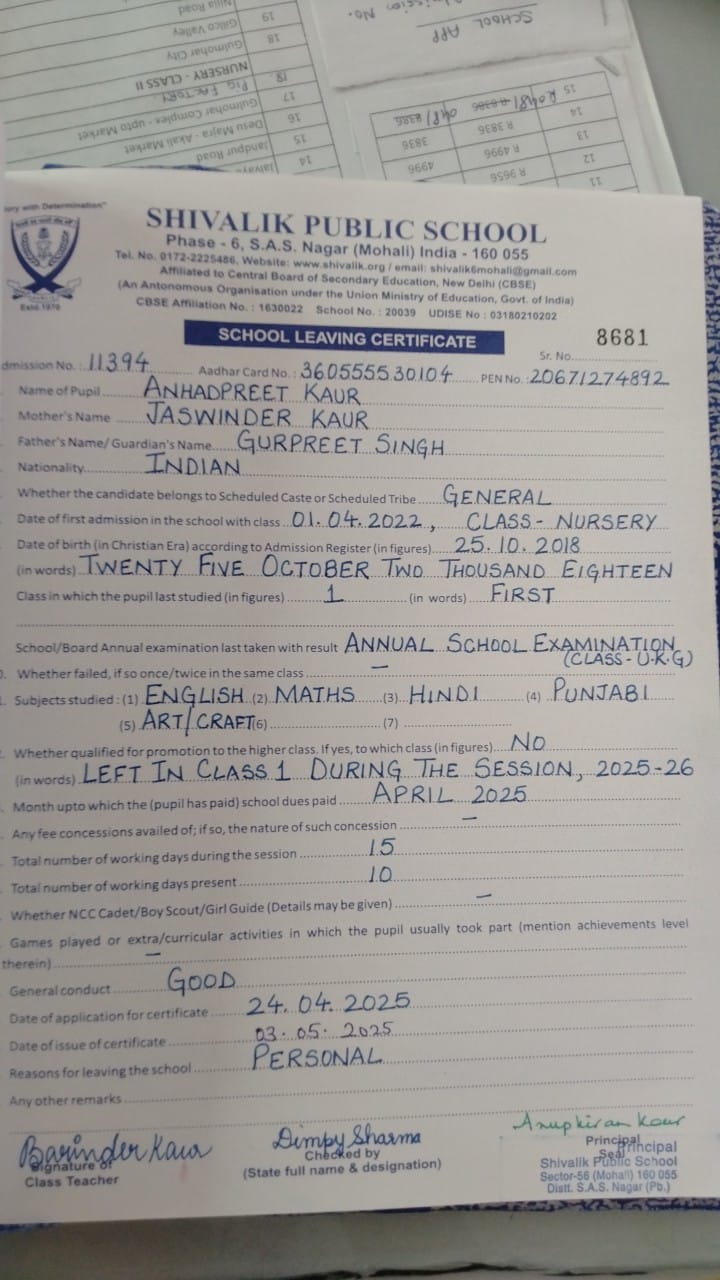 SCHOOL APP
No.
19
Gillco Valley
18
Gulmohar City
NURSERY - CLASS II
18
PIG FACTORY
17
Gulmohar Complex - upto Market
16
Desu Majra - Akali - Market
15
Jandpur Road
14
15
14
R 3836
3836
13
R 4996
4996
12
R 9656
11
SHIVALIK PUBLIC SCHOOL
Phase - 6, S.A.S. Nagar (Mohali) India - 160 055
Tel. No. 0172-2225486, Website: www.shivalik.org / email: shivalik6mohali@gmail.com
Affiliated to Central Board of Secondary Education, New Delhi (CBSE)
(An Antonomous Organisation under the Union Ministry of Education, Govt. of India)
CBSE Affiliation No. : 1630022 School No. : 20039 UDISE No : 03180210202
SCHOOL LEAVING CERTIFICATE
Sr. No. 8681
dmission No. : 11394 Aadhar Card No. : 360555530104 PEN No. : 20671274892
Name of Pupil ANHADPREET KAUR
Mother's Name JASWINDER KAUR
Father's Name/ Guardian's Name GURPREET SINGH
Nationality INDIAN
Whether the candidate belongs to Scheduled Caste or Scheduled Tribe GENERAL
Date of first admission in the school with class 01.04.2022, CLASS - NURSERY
Date of birth (in Christian Era) according to Admission Register (in figures) 25.10.2018
(in words) TWENTY FIVE OCTOBER TWO THOUSAND EIGHTEEN
Class in which the pupil last studied (in figures) 1 (in words) FIRST
School/Board Annual examination last taken with result ANNUAL SCHOOL EXAMINATION
(CLASS - U.K.G)
Whether failed, if so once/twice in the same class —
Subjects studied : (1) ENGLISH (2) MATHS (3) HINDI (4) PUNJABI
(5) ART/CRAFT (6) (7)
Whether qualified for promotion to the higher class. If yes, to which class (in figures) NO
(in words) LEFT IN CLASS 1 DURING THE SESSION, 2025-26
Month upto which the (pupil has paid) school dues paid APRIL 2025
Any fee concessions availed of; if so, the nature of such concession —
Total number of working days during the session 15
Total number of working days present 10
Whether NCC Cadet/Boy Scout/Girl Guide (Details may be given) —
Games played or extra/curricular activities in which the pupil usually took part (mention achievements level
therein) —
General conduct GOOD
Date of application for certificate 24.04.2025
Date of issue of certificate 03.05.2025
Reasons for leaving the school PERSONAL
Any other remarks
Barinder Kaur
Signature of
Class Teacher
Dimpy Sharma
Checked by
(State full name & designation)
Anupkiran Kaur
Principal
Seal
Principal
Shivalik Public School
Sector-56 (Mohali) 160 055
Distt. S.A.S. Nagar (Pb.)